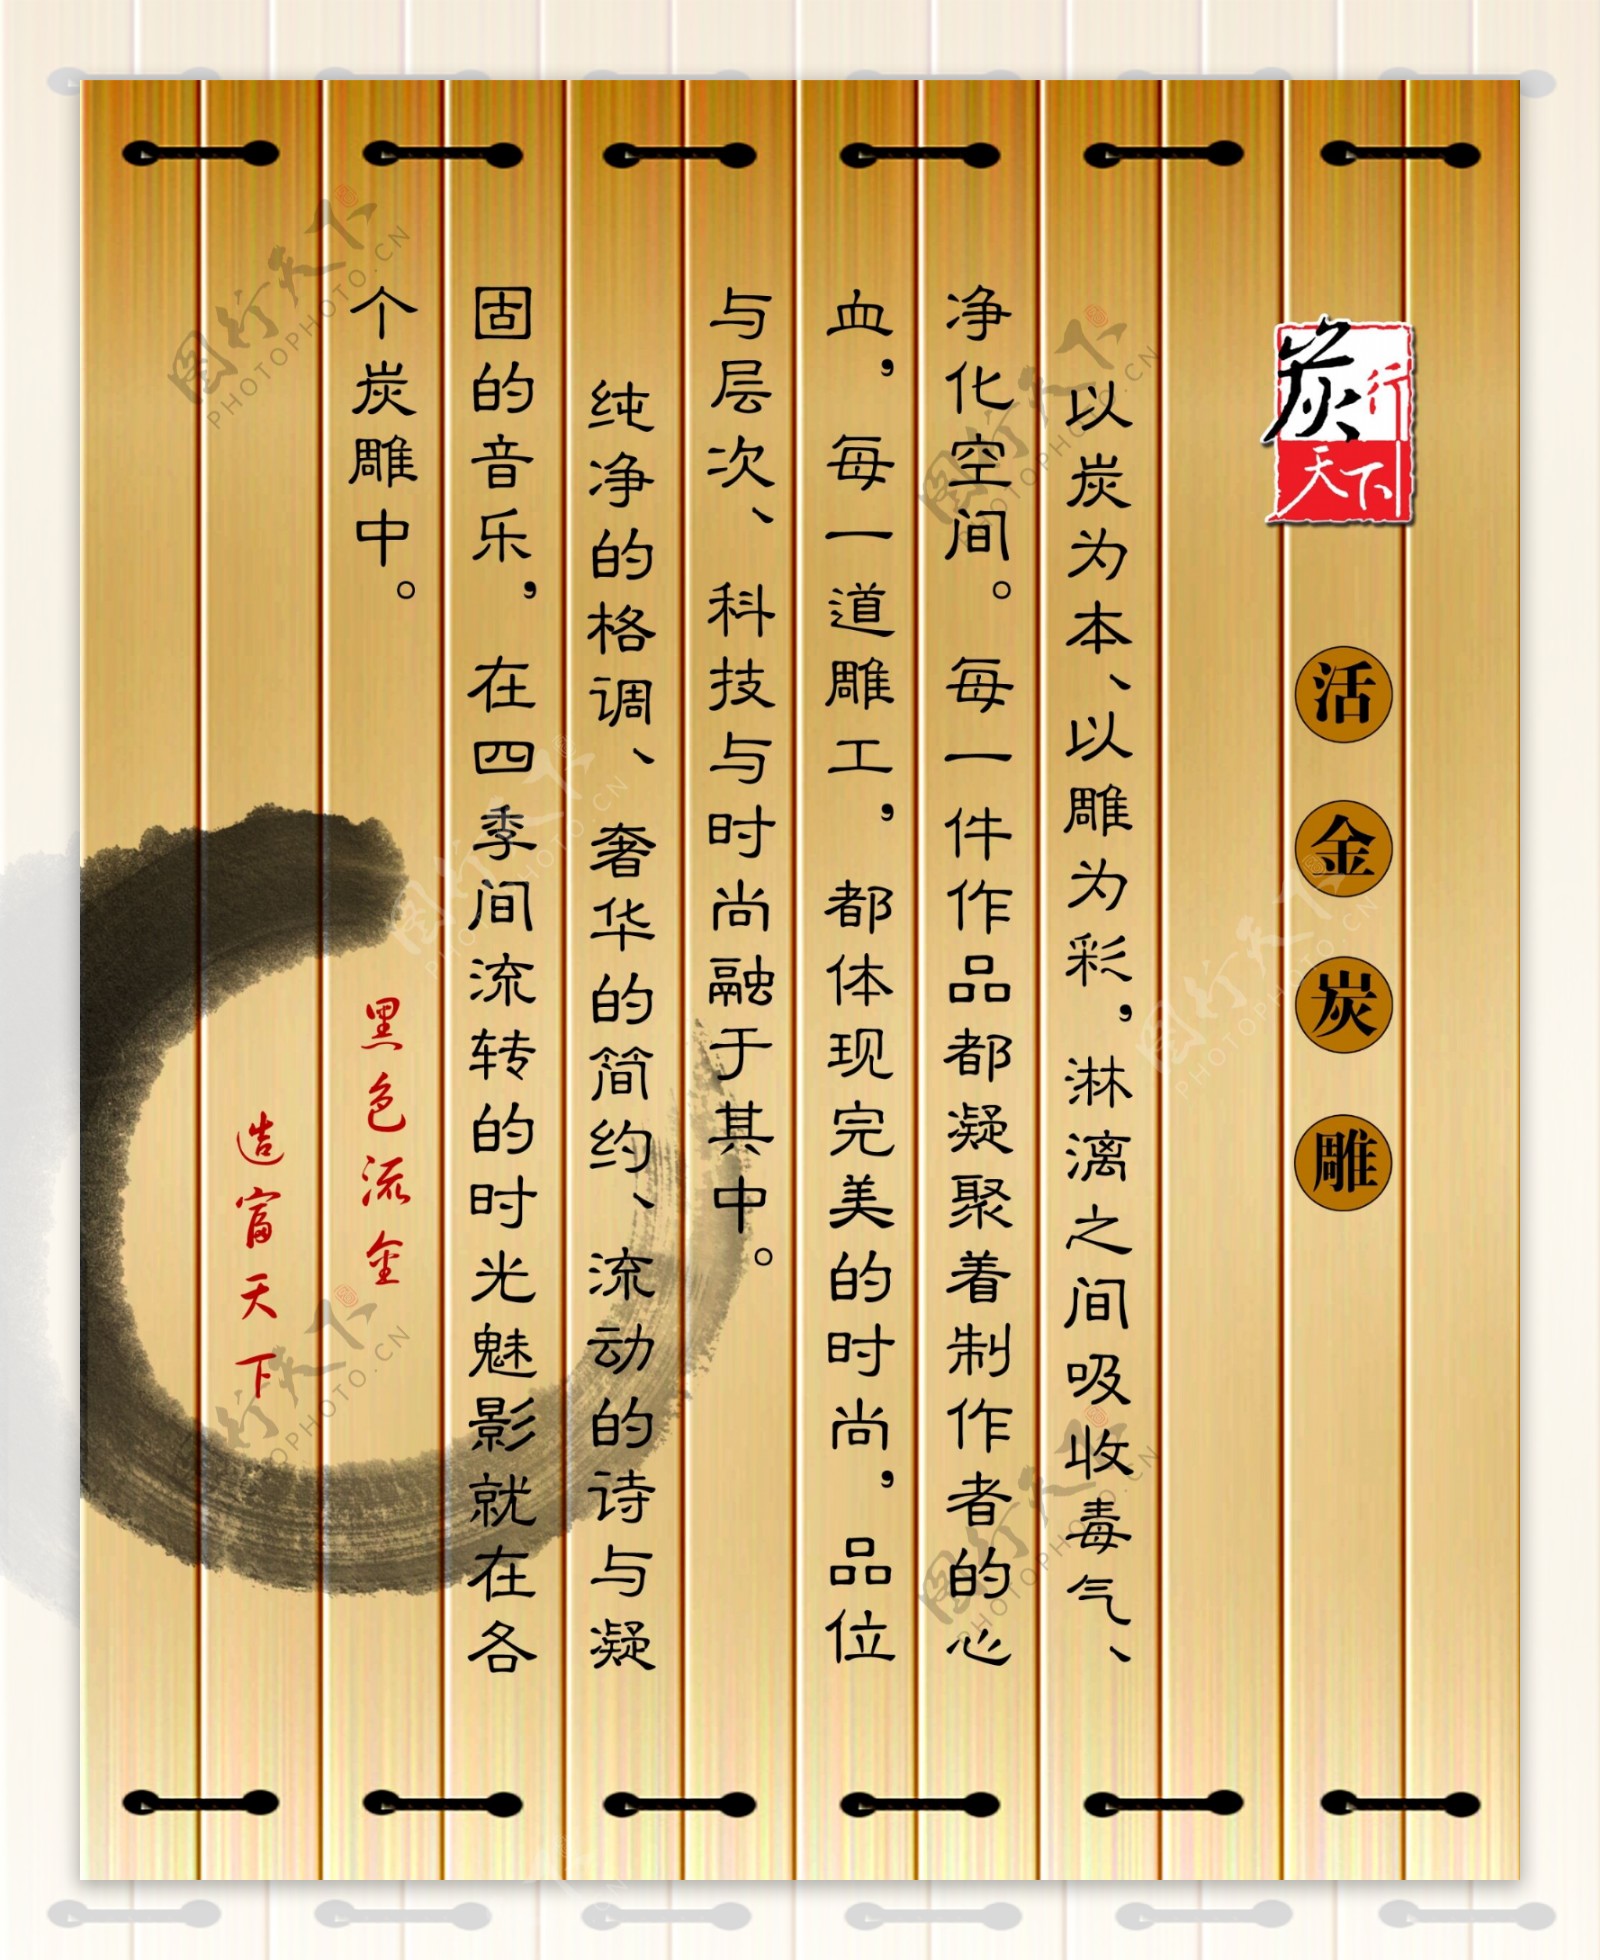 炭行天下
活金炭雕
以炭为本、以雕为彩，淋漓之间吸收毒气、
净化空间。每一件作品都凝聚着制作者的心
血，每一道雕工，都体现完美的时尚，品位
与层次、科技与时尚融于其中。
纯净的格调、奢华的简约、流动的诗与凝
固的音乐，在四季间流转的时光魅影就在各
个炭雕中。
黑色流金
造富天下
图行天下
PHOTOPHOTO.CN